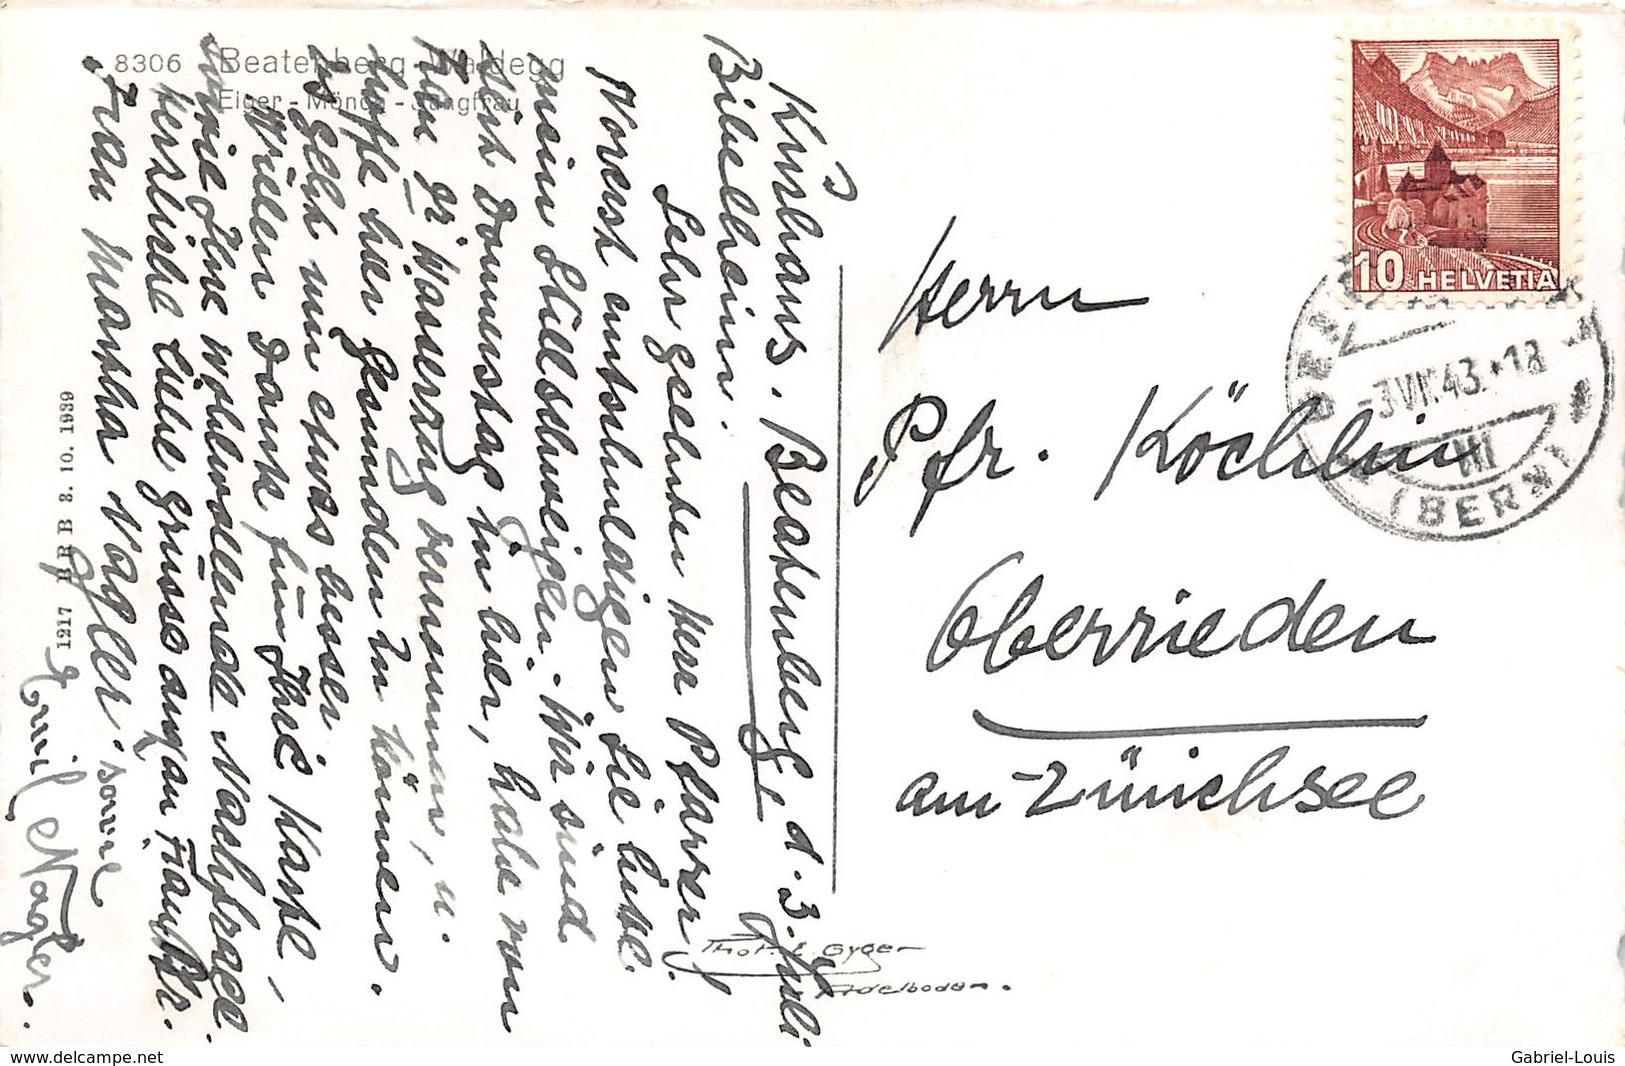 8306 Beatenberg-Waldegg
Eiger - Mönch - Jungfrau
1217 BRB 3. 10. 1939
Kurhaus. Beatenberg, d. 3. Juli
Bibelheim.
Sehr geehrter Herr Pfarrer!
Vorerst entschuldigen Sie bitte
mein Stillschweigen. Wir sind
seit Donnerstag in hier, habe von
Wasserzug vernommen, u.
hoffe hier gesunden zu können.
es geht nun etwas besser.
Vielen Dank für Ihre Karte,
sowie Ihre wohlwollende Nachfrage.
herzliche liebe Grüsse auch an Frau Pfr.
Frau Martha Nägler. sowie
Emil Nägler.
Phot. E. Gyger
Adelboden.
10 HELVETIA
-3.VII.43.-18
III
(BERN)
Herrn
Pfr. Köchlin
Oberrieden
am Zürichsee
delcampe.net
Gabriel-Louis